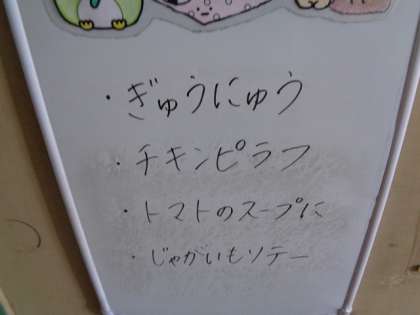 ・ぎゅうにゅう
・チキンピラフ
・トマトのスープに
・じゃがいもソテー